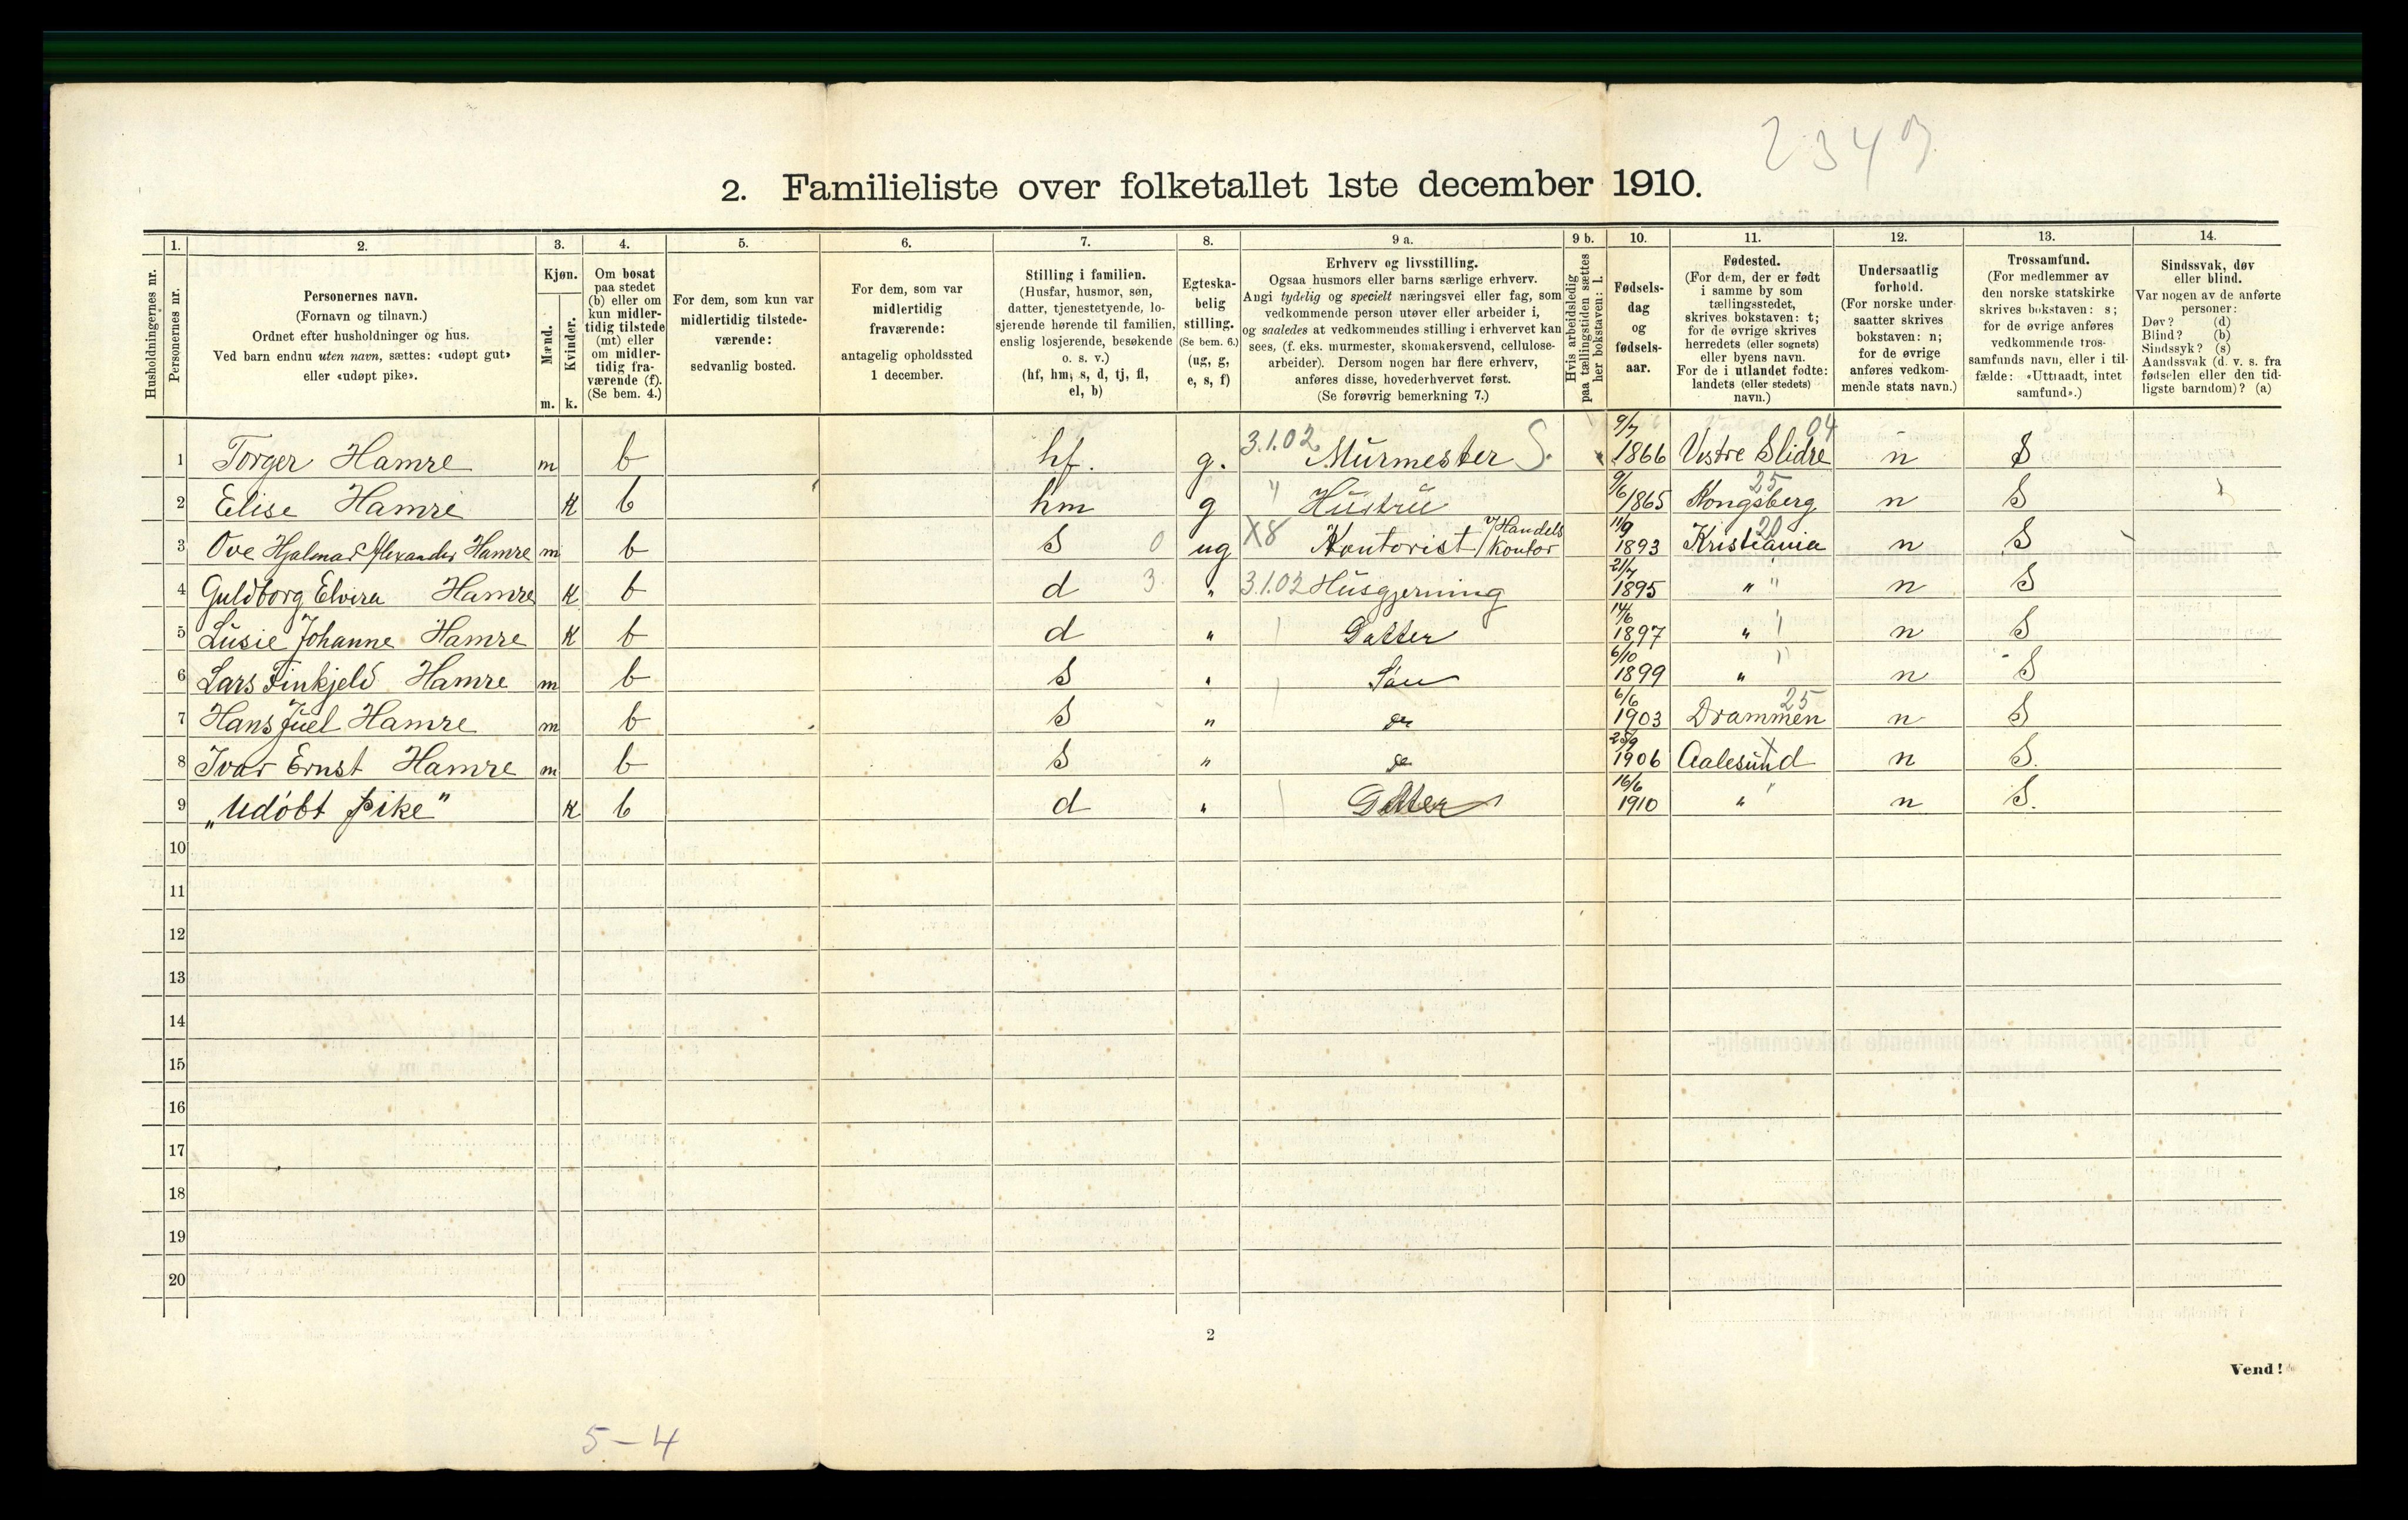 2347
2. Familieliste over folketallet 1ste december 1910.
1. 2. 3. 4. 5. 6. 7. 8. 9 a. 9 b. 10. 11. 12. 13. 14.
Husholdningernes nr.
Personernes nr.
Personernes navn.
(Fornavn og tilnavn.)
Ordnet efter husholdninger og hus.
Ved barn endnu uten navn, sættes: «udøpt gut»
eller «udøpt pike».
Kjøn.
Mænd.
Kvinder.
m. k.
Om bosat
paa stedet
(b) eller om
kun midler-
tidig tilstede
(mt) eller
om midler-
tidig fra-
værende (f).
(Se bem. 4.)
For dem, som kun var
midlertidig tilstede-
værende:
sedvanlig bosted.
For dem, som var
midlertidig
fraværende:
antagelig opholdssted
1 december.
Stilling i familien.
(Husfar, husmor, søn,
datter, tjenestetyende, lo-
sjerende hørende til familien,
enslig losjerende, besøkende
o. s. v.)
(hf, hm, s, d, tj, fl,
el, b)
Egteska-
belig
stilling.
(Se bem. 6.)
(ug, g,
e, s, f)
Erhverv og livsstilling.
Ogsaa husmors eller barns særlige erhverv.
Angi tydelig og specielt næringsvei eller fag, som
vedkommende person utøver eller arbeider i,
og saaledes at vedkommendes stilling i erhvervet kan
sees, (f. eks. murmester, skomakersvend, cellulose-
arbeider). Dersom nogen har flere erhverv,
anføres disse, hovederhvervet først.
(Se forøvrig bemerkning 7.)
Hvis arbeidsledig
paa tællingstiden sættes
her bokstaven: l.
Fødsels-
dag
og
fødsels-
aar.
Fødested.
(For dem, der er født
i samme by som
tællingsstedet,
skrives bokstaven: t;
for de øvrige skrives
herredets (eller sognets)
eller byens navn.
For de i utlandet fødte:
landets (eller stedets)
navn.)
Undersaatlig
forhold.
(For norske under-
saatter skrives
bokstaven: n;
for de øvrige
anføres vedkom-
mende stats navn.)
Trossamfund.
(For medlemmer av
den norske statskirke
skrives bokstaven: s;
for de øvrige anføres
vedkommende tros-
samfunds navn, eller i til-
fælde: «Uttraadt, intet
samfund».)
Sindssvak, døv
eller blind.
Var nogen av de anførte
personer:
Døv? (d)
Blind? (b)
Sindssyk? (s)
Aandssvak (d. v. s. fra
fødselen eller den tid-
ligste barndom)? (a)
1 Torger Hamre m b hf. g. 3.1.02 Murmester S. 9/7 1866 Vestre Slidre 04 n S
2 Elise Hamre k b hm g " Hustru 9/6 1865 Kongsberg 25 n S
3 Ove Hjalmar Alexander Hamre m b S 0 ug X8 Kontorist / Handels Kontor 11/9 1893 Kristiania 20 n S
4 Guldborg Elvira Hamre k b d 3 " 3.1.02 Husgjerning 21/7 1895 " " n S
5 Lusie Johanne Hamre k b d " Datter 14/6 1897 " " n S
6 Lars Finkjeld Hamre m b S " Søn 6/10 1899 " " n S
7 Hans Juel Hamre m b S " do 6/6 1903 Drammen 25 n S
8 Ivar Ernst Hamre m b S " do 25/9 1906 Aalesund X n S.
9 „Udöbt Pike" k b d " Datter 16/6 1910 " " n S.
10
11
12
13
14
15
16
17
18
19
20
2
Vend!
5-4